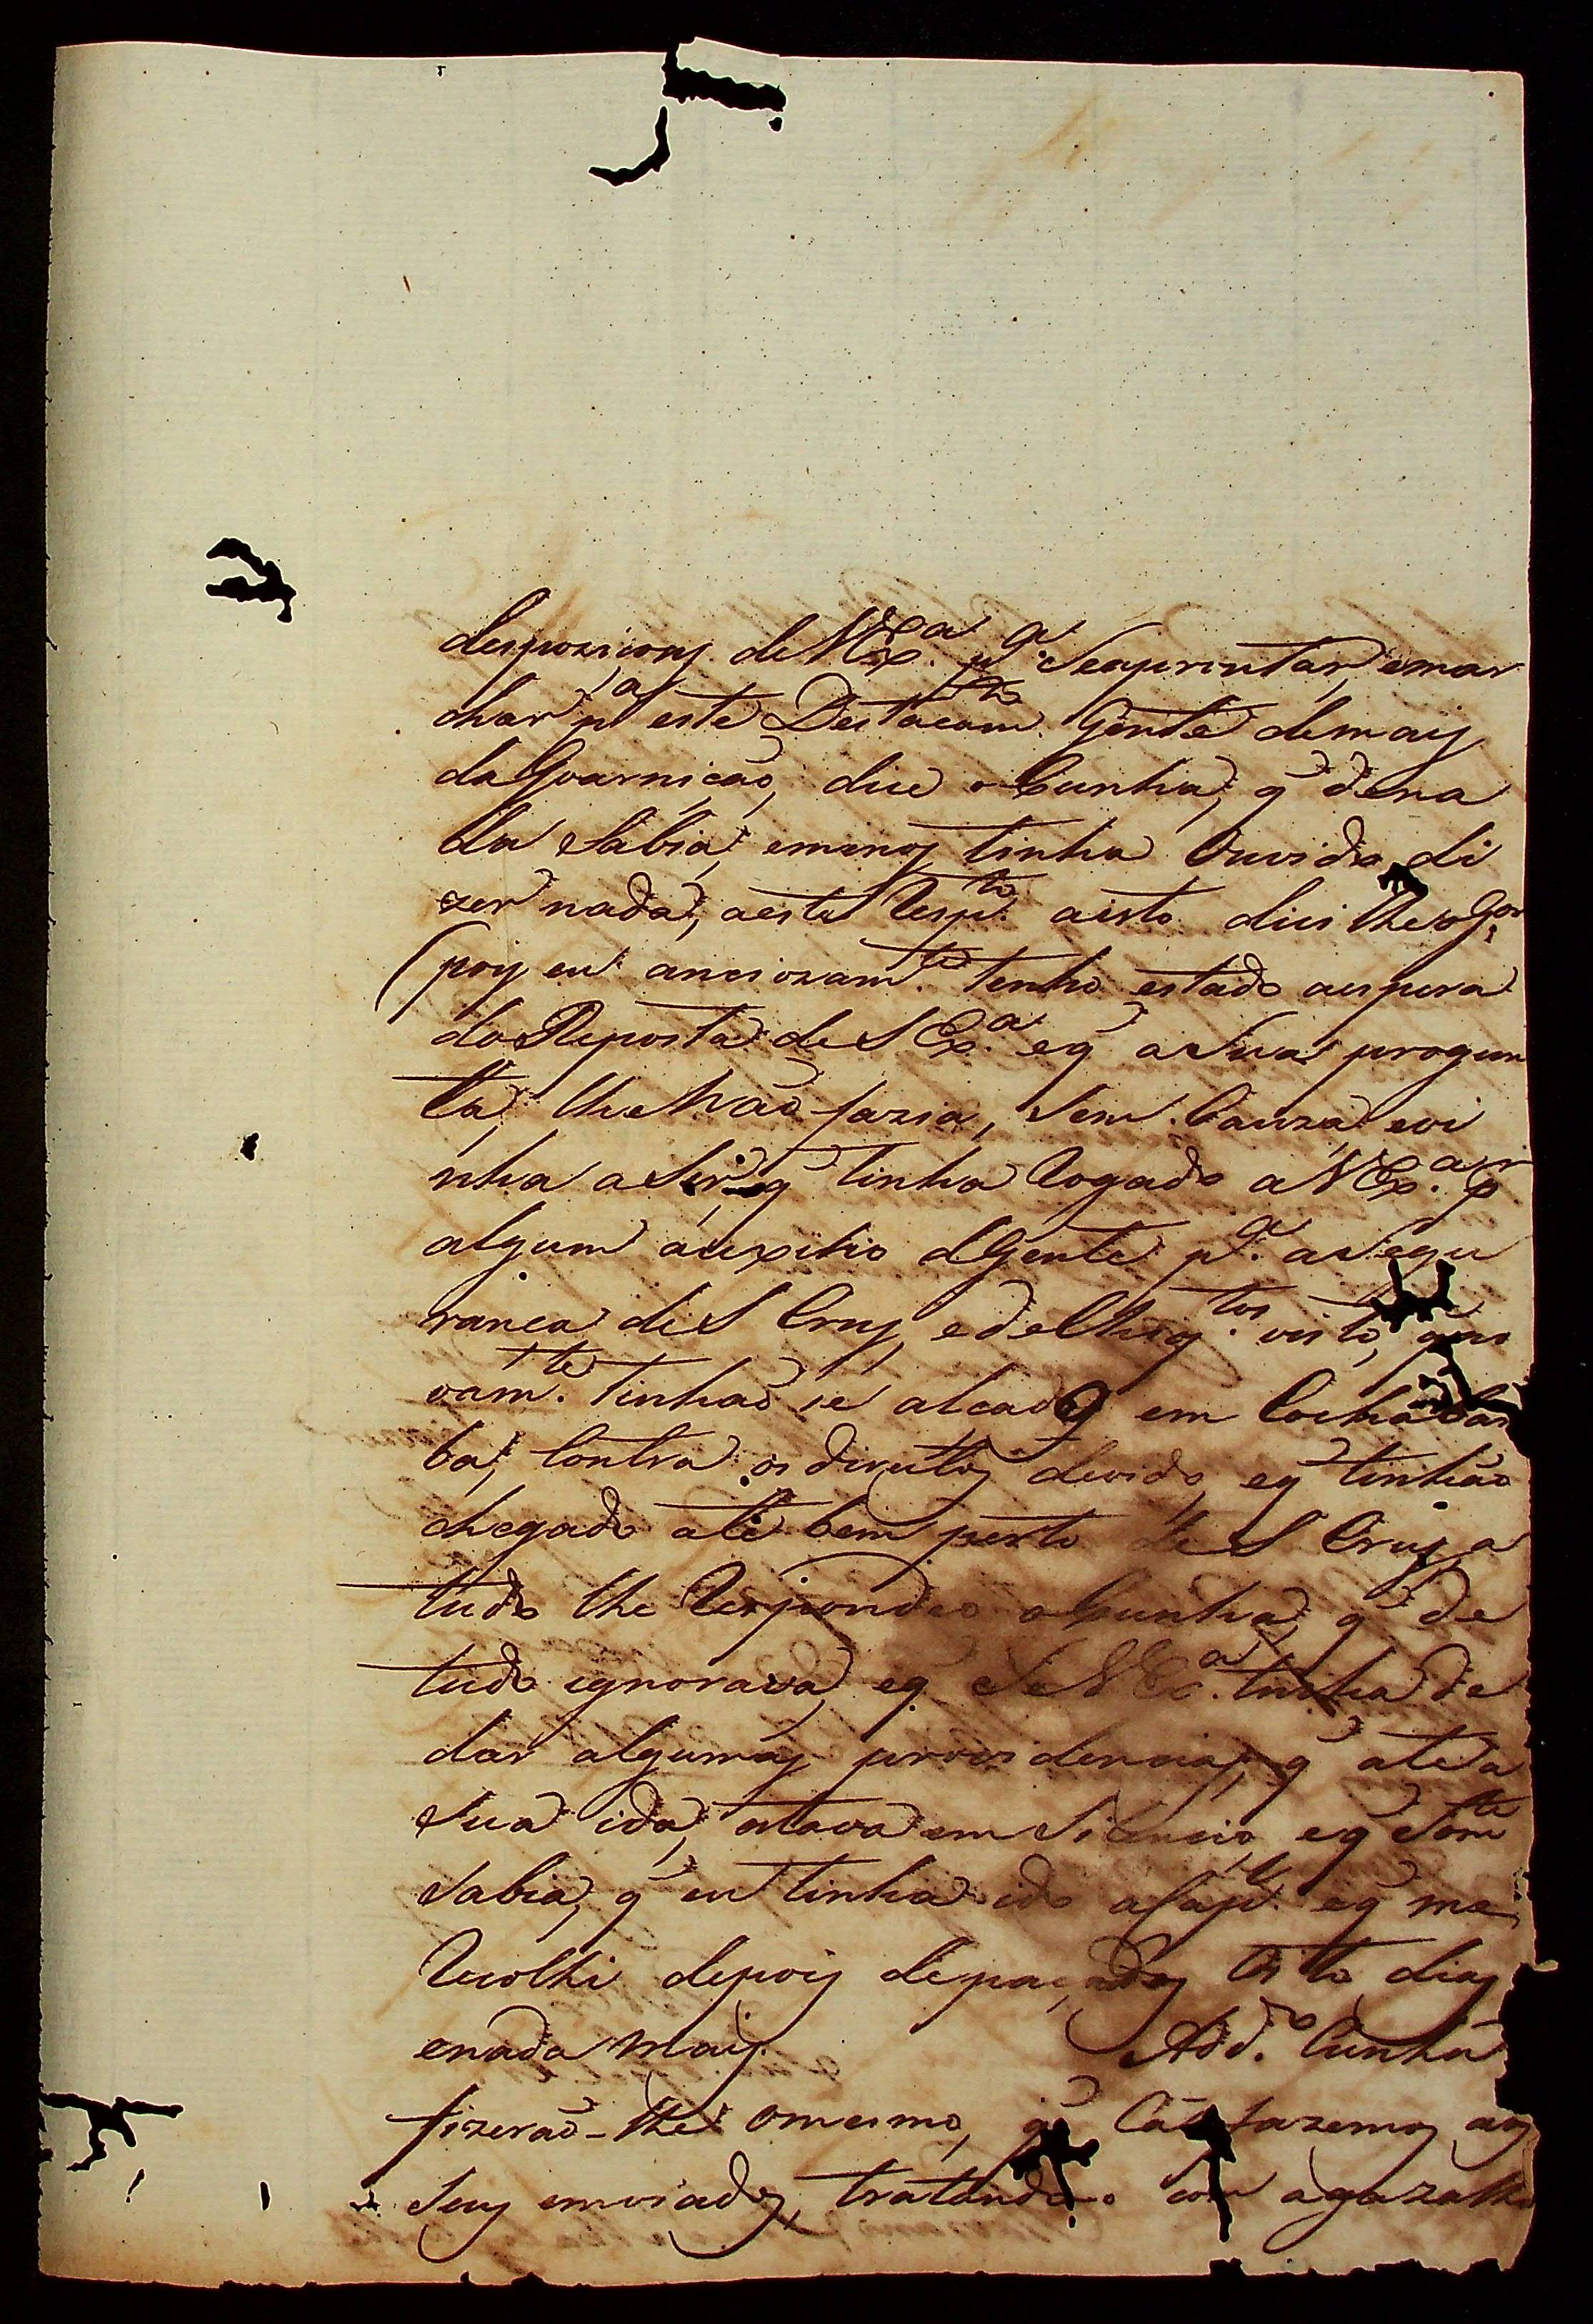 despozicoens de V Ex.ª p.ª Seaprontar, emar
char p.ª este Destacam.to Gente demais
daGuarnicaõ, dice o Cunha, q̃ dena
da Sabia, emenos tinha Ouvido di
zer nada, aeste Resp.to aisto dice lhe o G.or
(pois eu anciozam.te tenho estado aespera
daReposta de S Ex.ª eq̃ aSua pregun
ta, lhe Naõ fazia, Sem Cauza, evi
nha aSer, q̃ tinha Rogado aV Ex.ª p.r
algum auxilio dGente p.ª aSegu
ranca de S Cruz, edeChiq.tos visto, q̃
vam.te tinhaõ se alcado em Cochabam
ba, Contra os direitos devido, eq̃ tinhaõ
chegado até bem perto de S Cruz, a
tudo lhe Respondeo oCunha, q̃ de
tudo ignorava, eq̃ Se V Ex.ª tinha de
dar algumas providencias, q̃ ate a
Sua ida, estava em Silencio, eq̃ Som.te
Sabia, q̃ eu tinha ido aCap.l eq̃ me
Recolhi depois depaçados Oito dias
enada Mais. Aod.º Cunha
fizeraõ-lhe Omesmo, q̃ Cá fazemos aos
Seus enviados, tratando-o com agazalho